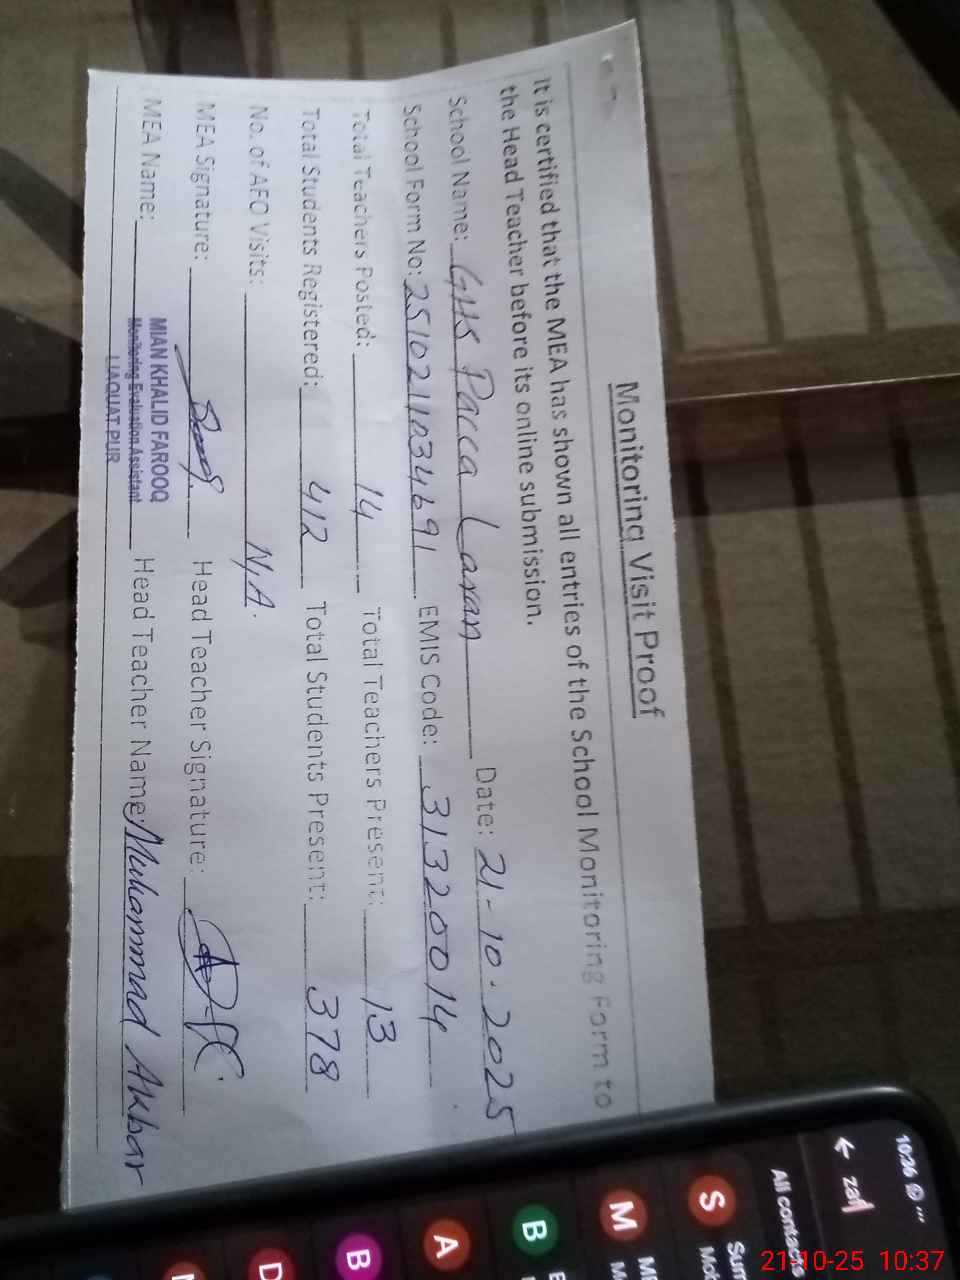 Monitoring Visit Proof
It is certified that the MEA has shown all entries of the School Monitoring Form to
the Head Teacher before its online submission.
School Name: GHS Pacca Laran Date: 21-10-2025
School Form No: 2510211034691 EMIS Code: 31320014
Total Teachers Posted: 14 Total Teachers Present: 13
Total Students Registered: 412 Total Students Present: 378
No. of AFO Visits: N/A.
MEA Signature: Head Teacher Signature:
MEA Name: MIAN KHALID FAROOQ Head Teacher Name: Muhammad Akbar
Monitoring Evaluation Assistant
LIAQUAT PUR
10:36
zaf
All contacts
S
M
B
A
B
D
21-10-25 10:37